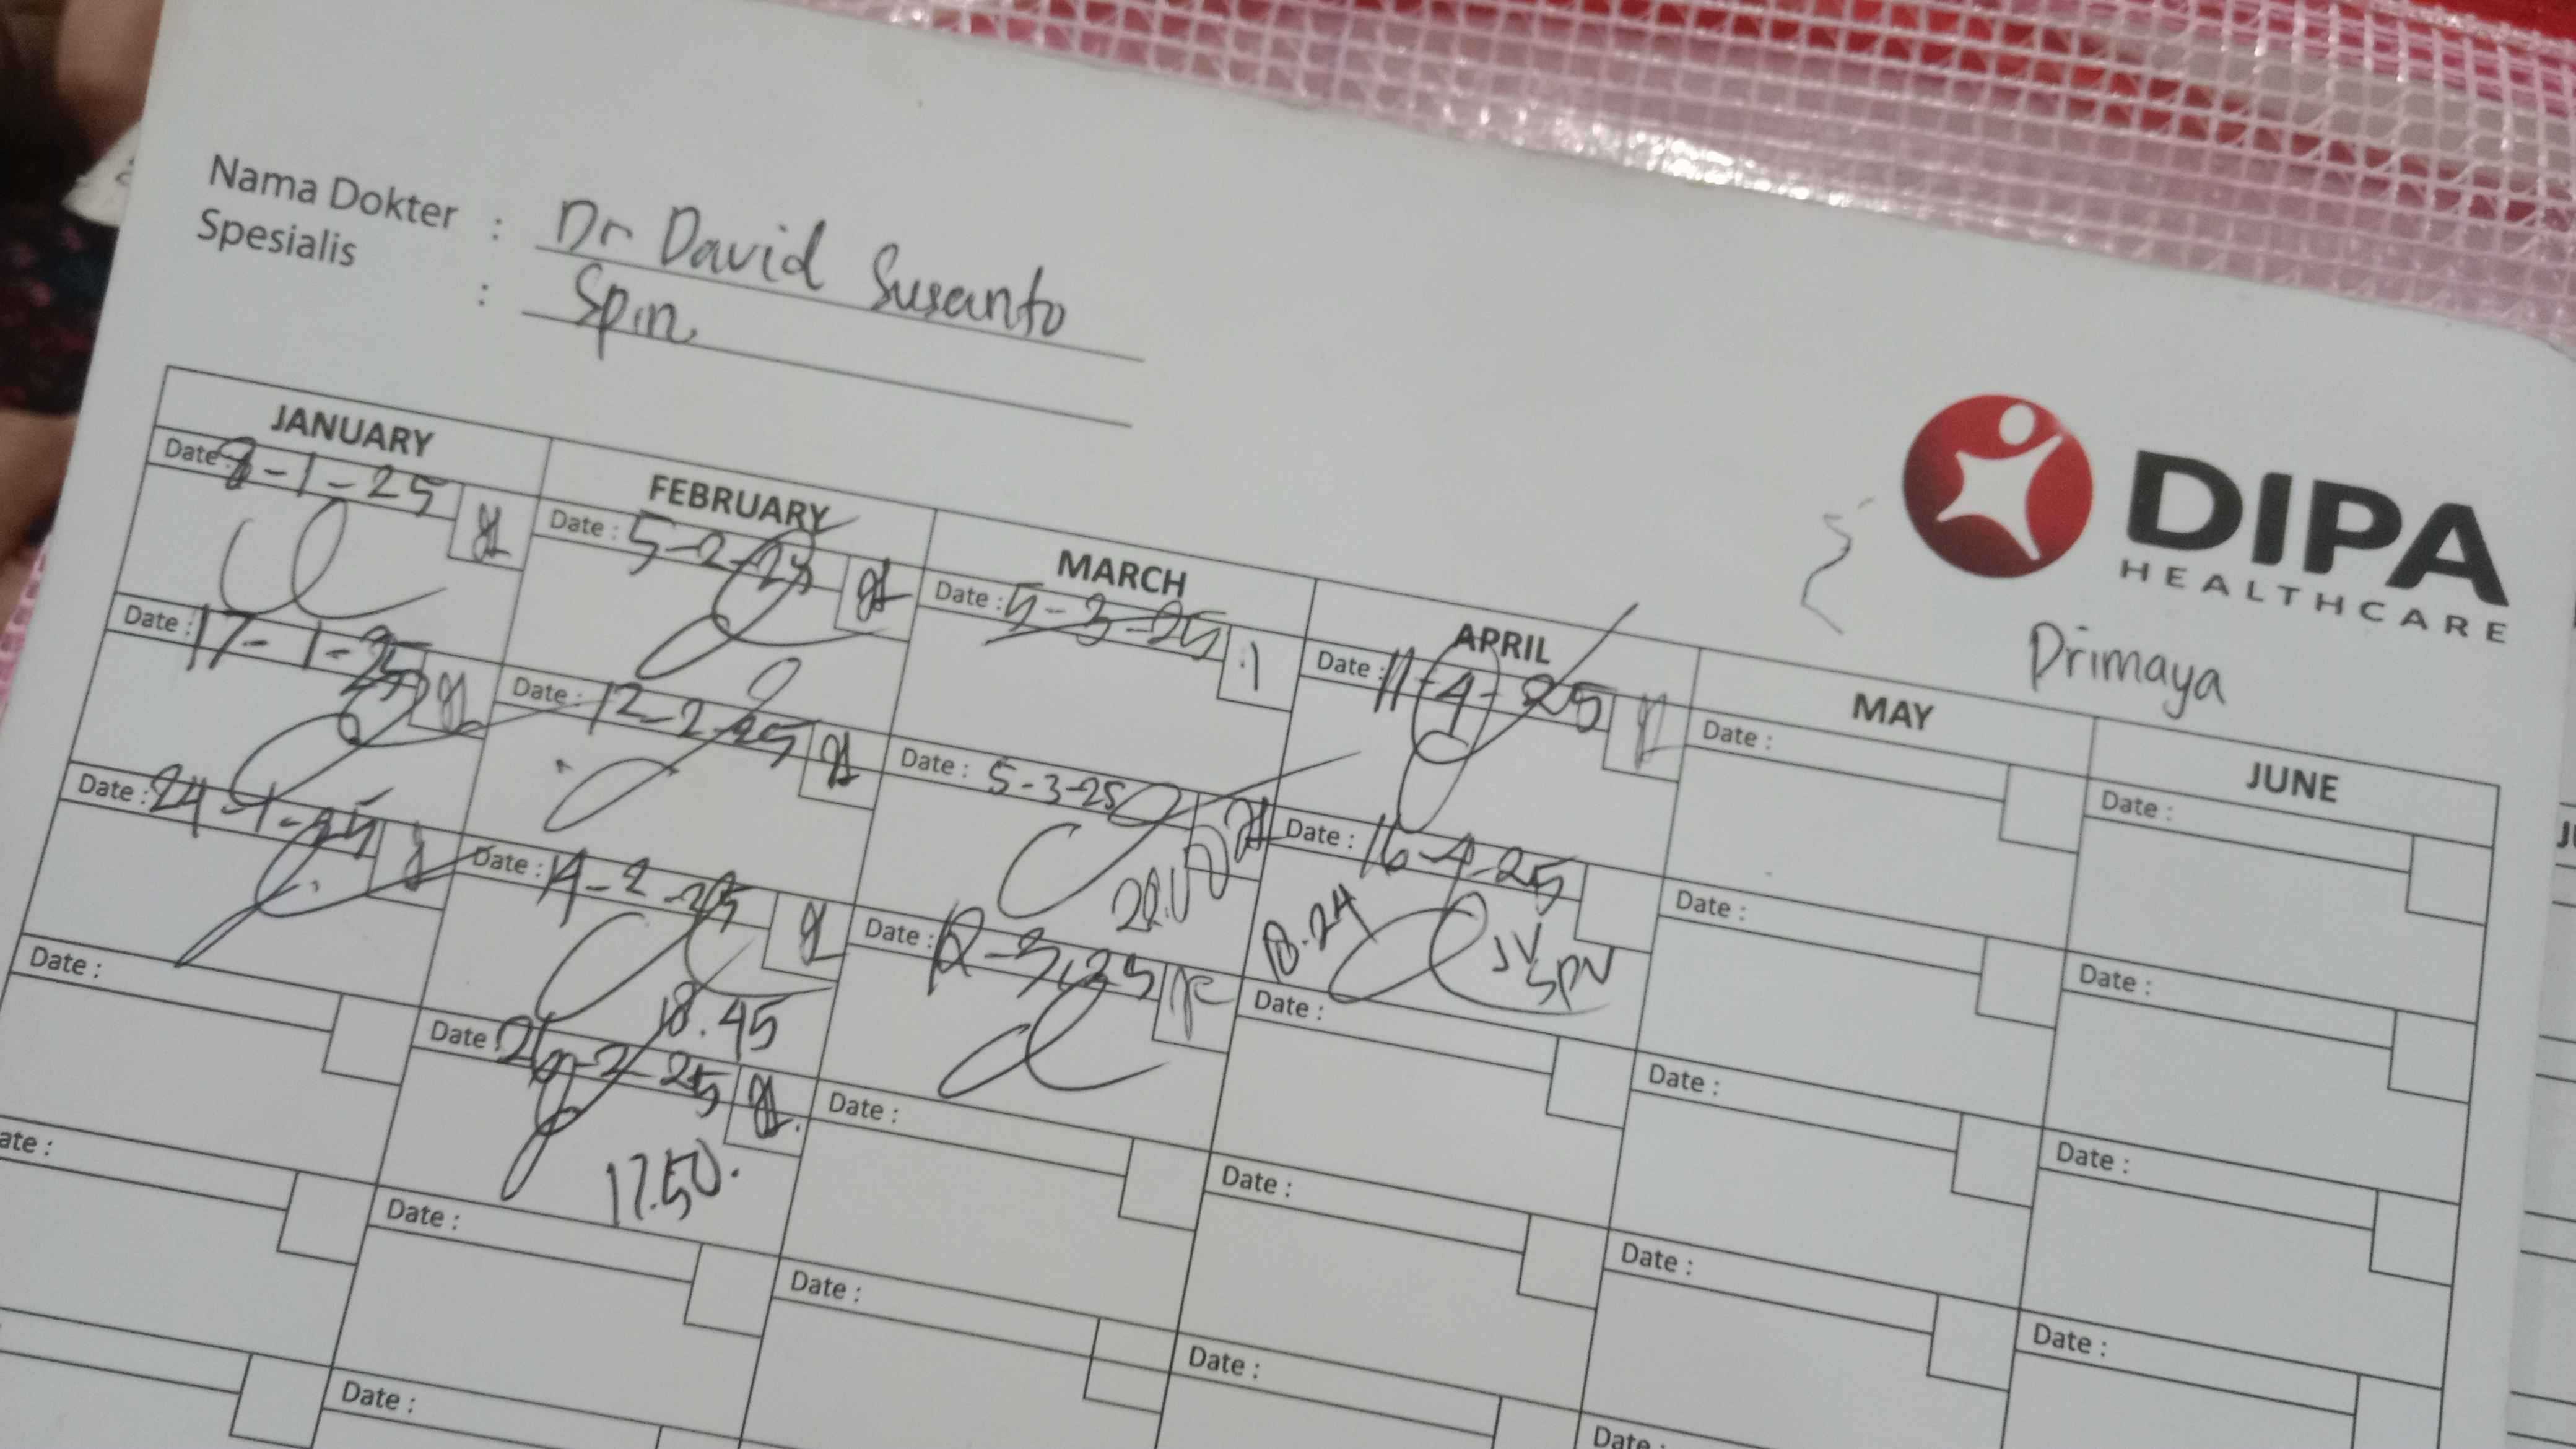 Nama Dokter : Dr David Susanto
Spesialis : Spin
DIPA
HEALTHCARE
Primaya
JANUARY FEBRUARY MARCH APRIL MAY JUNE
Date : 8-1-25 Date : 5-2-25 Date : 5-3-25 Date : 11-4-25 Date : Date :
Date : 17-1-25 Date : 12-2-25 Date : 5-3-25 Date : 16-4-25 Date : Date :
18.24 JV SPV
Date : 24-1-25 Date : 14-2-25 Date : 12-3-25 Date : Date : Date :
18.45
Date : Date : 26-2-25 Date : Date : Date : Date :
17.50.
ate : Date : Date : Date : Date :
Date : Date :